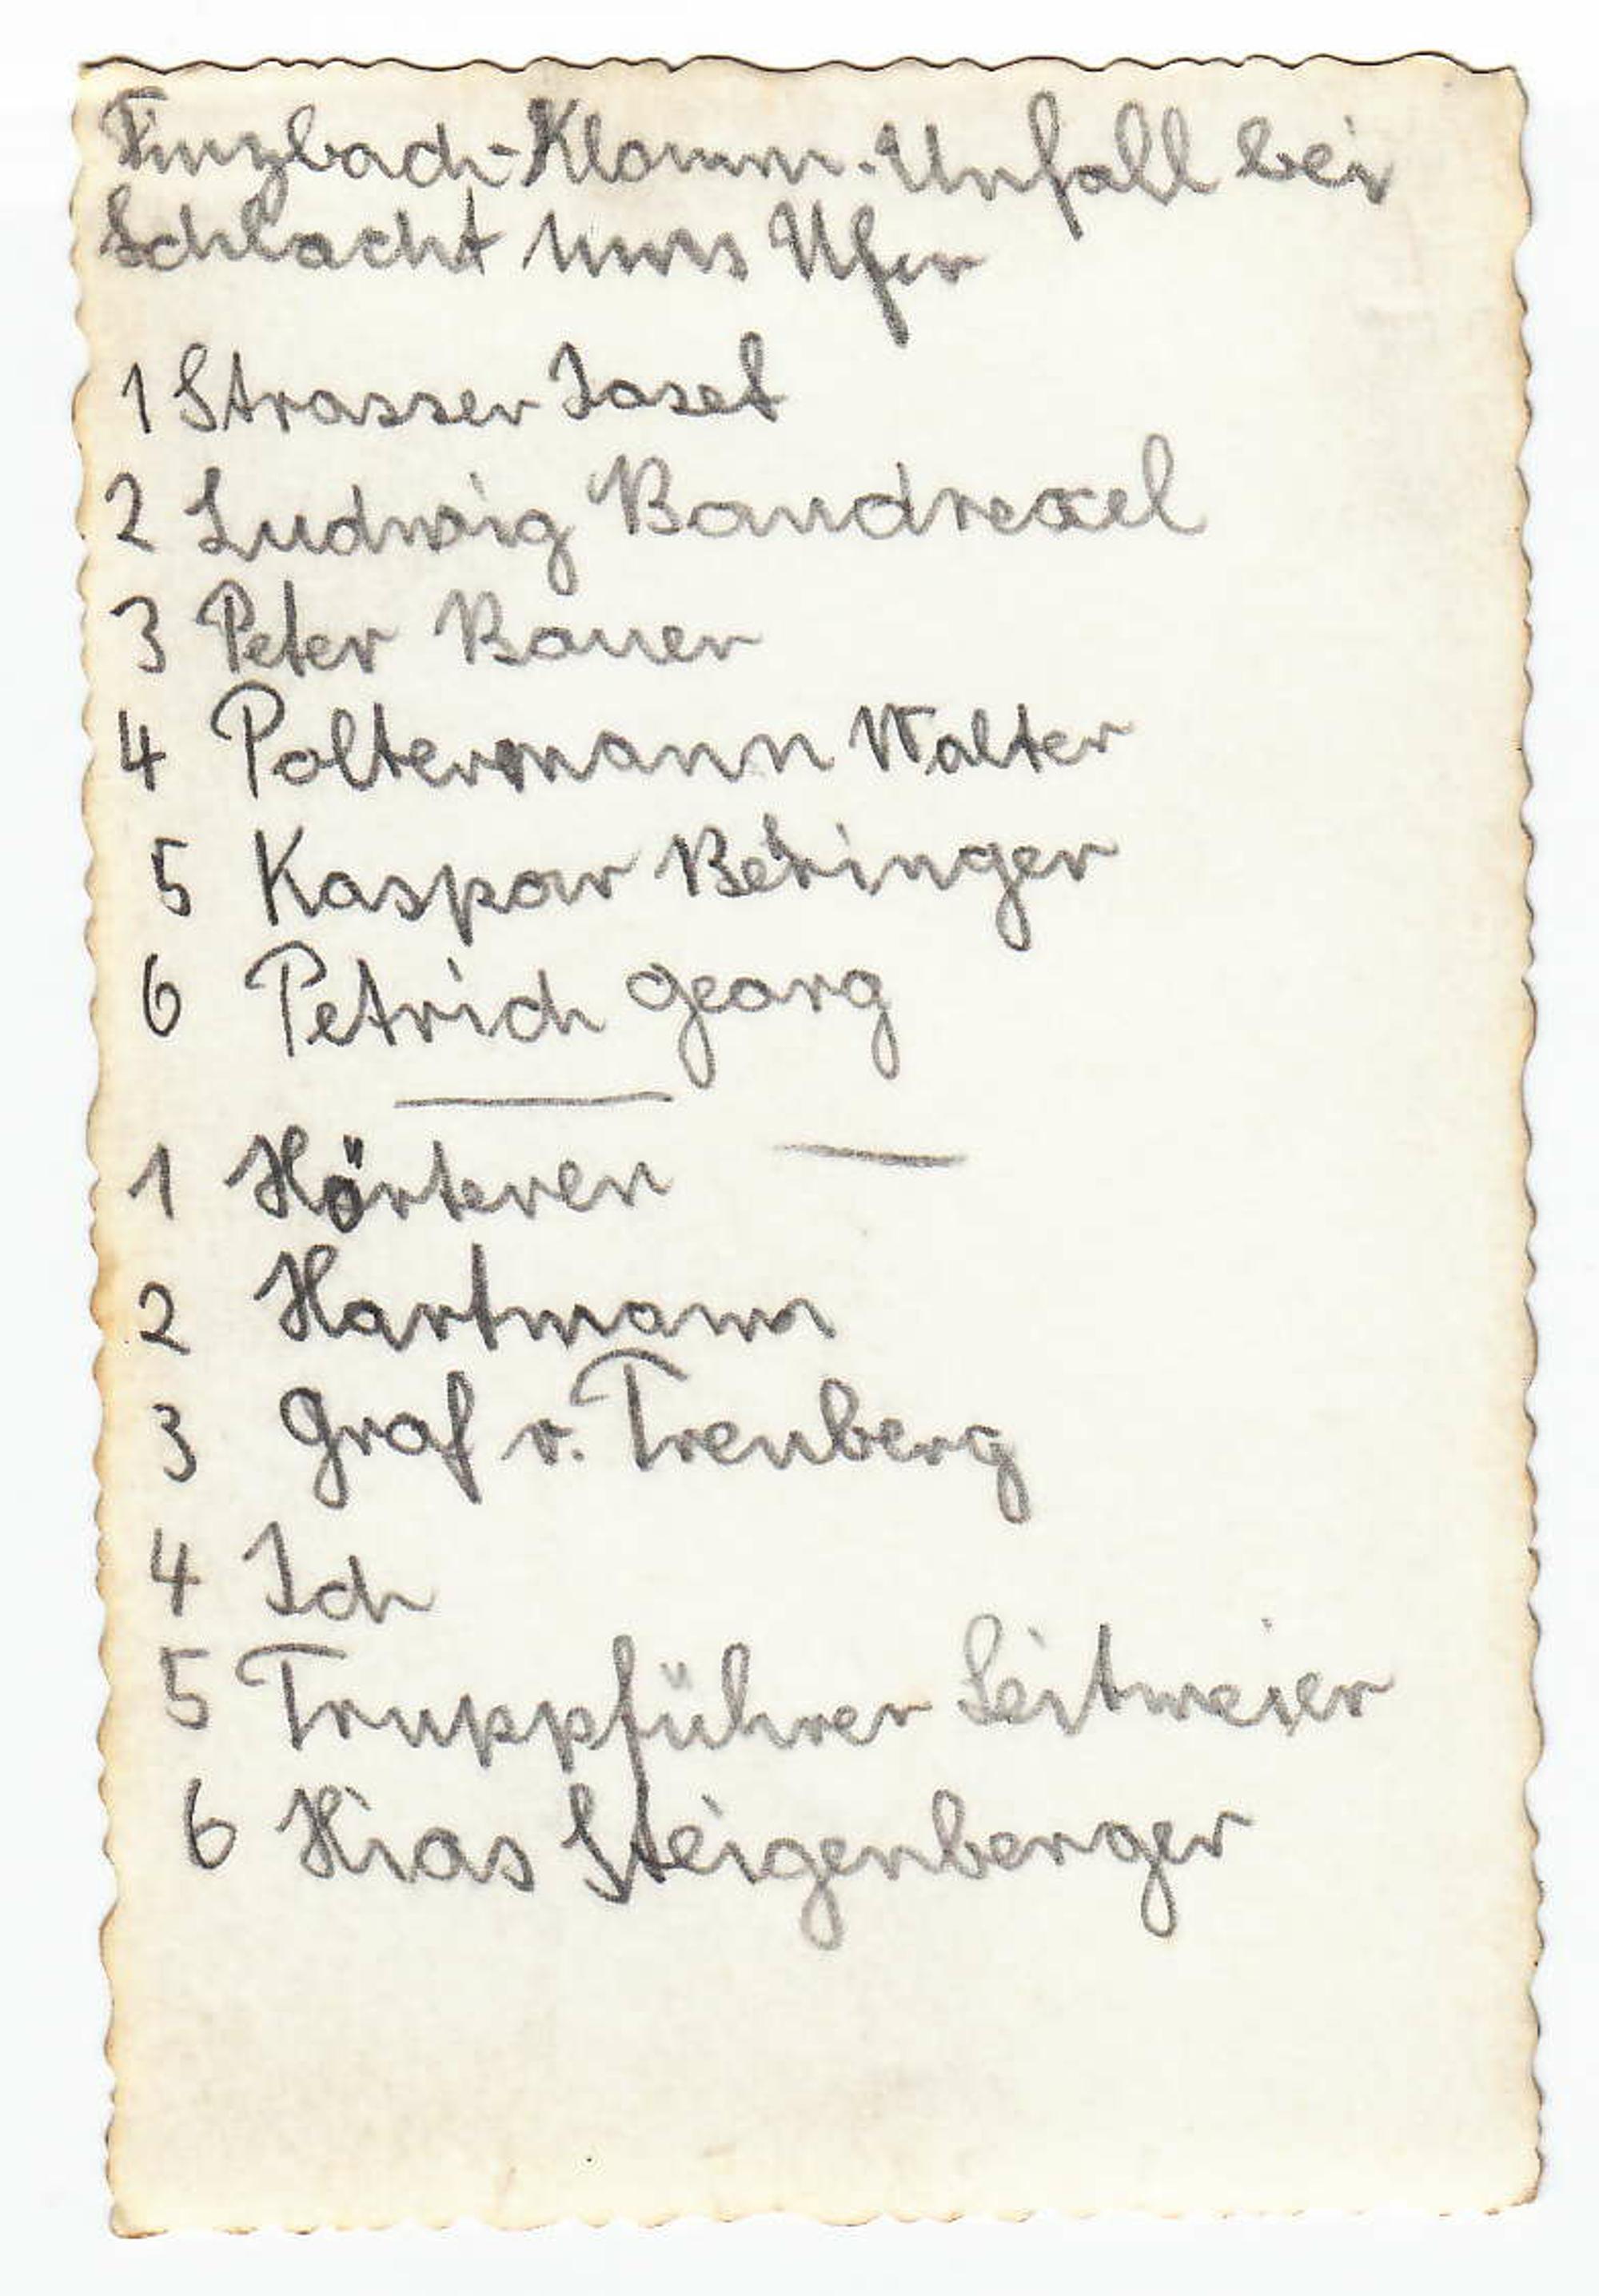 Finzbach-Klamm-Unfall bei
Schlacht ums Ufer
1 Strasser Josef
2 Ludwig Baudrexel
3 Peter Bauer
4 Poltermann Walter
5 Kaspar Beringer
6 Petrich Georg
1
2 Hartmann
3 Graf v. Treuberg
4 Ich
5 Truppführer Leitmeier
6 Hias Steigenberger